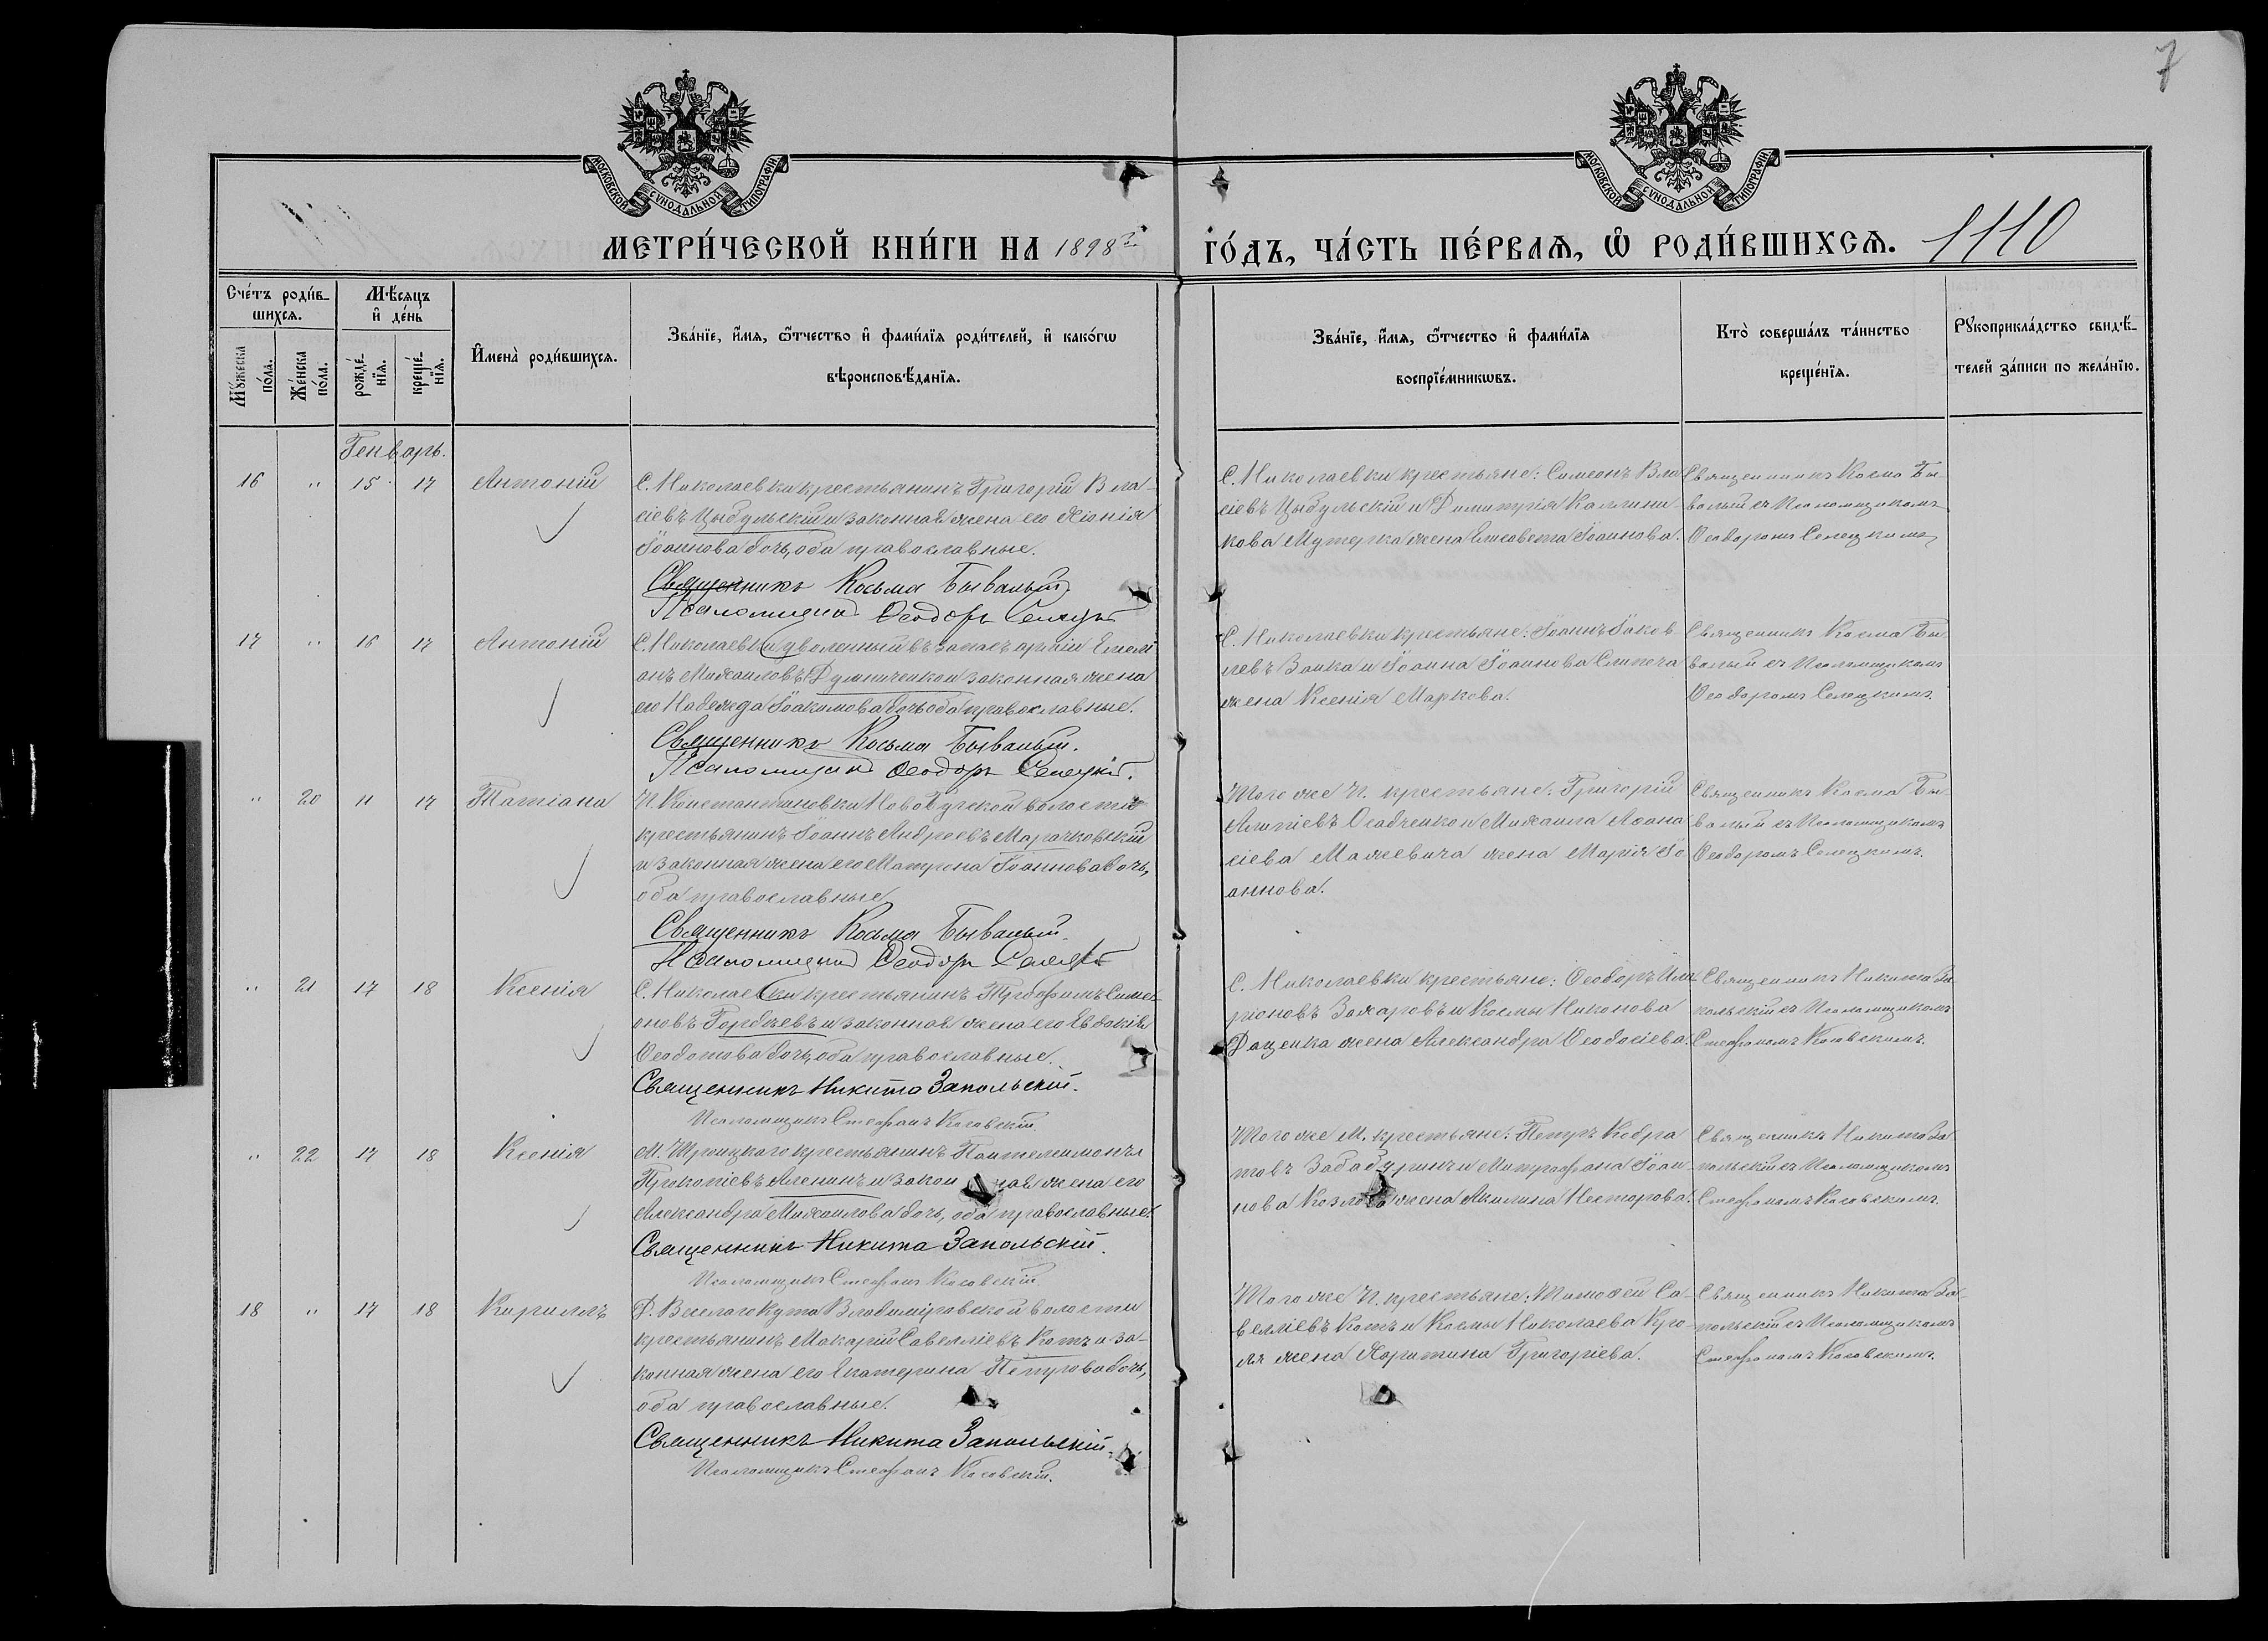 7
МОСКОВСКОЙ СУНОДАЛЬНОЙ ТИПОГРАФІИ
МОСКОВСКОЙ СУНОДАЛЬНОЙ ТИПОГРАФІИ
МЕТРИ́ЧЕСКОЙ КНИ́ГИ НА 1898 й
ГО́ДЪ, ЧА́СТЬ ПЕ́РВАѦ, Ѡ҆ РОДИ́ВШИХСѦ. 1110
Сче́тъ роди́в-
шихсѧ.
Мꙋ́жеска по́ла.
Же́нска по́ла.
Мѣ́сѧцъ
и҆ де́нь
рожде́-
нїѧ.
креще́-
нїѧ.
И҆мена̀ роди́вшихсѧ.
Зва́нїе, и҆́мѧ, ѻ҆́тчество и҆ фами́лїѧ роди́телей, и҆ како́гѡ
вѣроисповѣ́данїѧ.
Зва́нїе, и҆́мѧ, ѻ҆́тчество и҆ фами́лїѧ
воспрїе́мникѡвъ.
Кто̀ соверша́лъ та́инство
креще́нїѧ.
Рꙋкоприкла́дство свидѣ́-
телей за́писи по жела́нїю.
Генварь.
16 " 15 17 Антоній
С. Николаевки крестьянинъ Григорій Вла-
сіевъ Цыбульскій и законная жена его Хіонія
Іоаннова дочь, оба православные.
Священникъ Косьма Бывалый.
Псаломщикъ Ѳеодоръ Селецкій
С. Николаевки крестьяне: Симеонъ Вла
сіевъ Цыбульскій и Димитрія Каллини-
кова Мутерка жена Елисавета Іоаннова.
Священникъ Косма Бы-
валый съ Псаломщикомъ
Ѳеодоромъ Селецкимъ
17 " 16 17 Антоній
С. Николаевки уволенный въ запасъ арміи Емели
анъ Михаиловъ Думниченко и законная жена
его Надежда Іоакимова дочь оба православные.
Священникъ Косьма Бывалый.
Псаломщикъ Ѳеодоръ Селецкій.
С. Николаевки крестьяне: Іоаннъ Іаков
левъ Заика и Іоанна Іоаннова Слипеча
жена Ксенія Маркова.
Священникъ Косма Бы
валый съ Псаломщикомъ
Ѳеодоромъ Селецкимъ.
" 20 11 17 Татіана
П. Константиновки Ново Бугской волости
крестьянинъ Іоаннъ Андреевъ Марачковскій
и законная жена его Матрона Іоаннова дочь,
оба православные
Священникъ Косьма Бывалый.
Псаломщикъ Ѳеодоръ Селецкій
Того же П. крестьяне: Григорій
Алипіевъ Осадченко и Михаила Аѳана
сіева Мажевича жена Марія Іо
аннова.
Священникъ Косма Бы
валый съ Псаломщикомъ
Ѳеодоромъ Селецкимъ.
" 21 17 18 Ксенія
С. Николаевки крестьянинъ Трофимъ Симе-
оновъ Горбачевъ и законная жена его Евдокія
Ѳеодотова дочь, оба православные.
Священникъ Никита Запольскій.
Псаломщикъ Стефанъ Косовскій.
С. Николаевки крестьяне: Ѳеодоръ Ила
ріоновъ Захаровъ и Космы Никонова
Даценка жена Александра Ѳеодосіева.
Священникъ Никита За
польскій съ Псаломщикомъ
Стефаномъ Косовскимъ.
" 22 17 18 Ксенія
М. Троицкаго крестьянинъ Пантелеимонъ
Прокопіевъ Аленинъ и законная жена его
Александра Михаилова дочь, оба православные.
Священникъ Никита Запольскій.
Псаломщикъ Стефанъ Косовскій
Того же М. крестьяне: Петръ Кодра
товъ Забабуринъ и Митрофана Іоан-
нова Козлова жена Акилина Несторова.
Священникъ Никита За
польскій съ Псаломщикомъ
Стефаномъ Косовскимъ.
18 " 17 18 Кириллъ
Д. Веселаго Кута Владиміровской волости
крестьянинъ Макарій Савелліевъ Котъ и за-
конная жена его Екатерина Петрова дочь,
оба православные.
Священникъ Никита Запольскій.
Псаломщикъ Стефанъ Косовскій.
Того же П. крестьяне: Тимоѳей Са-
велліевъ Котъ и Космы Николаева Кро-
ля жена Харитина Григоріева.
Священникъ Никита За-
польскій съ Псаломщикомъ
Стефаномъ Косовскимъ.